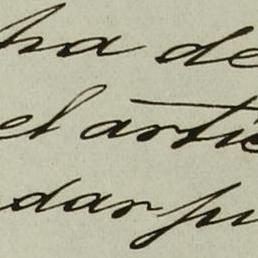 ha de
el artic
dar pu